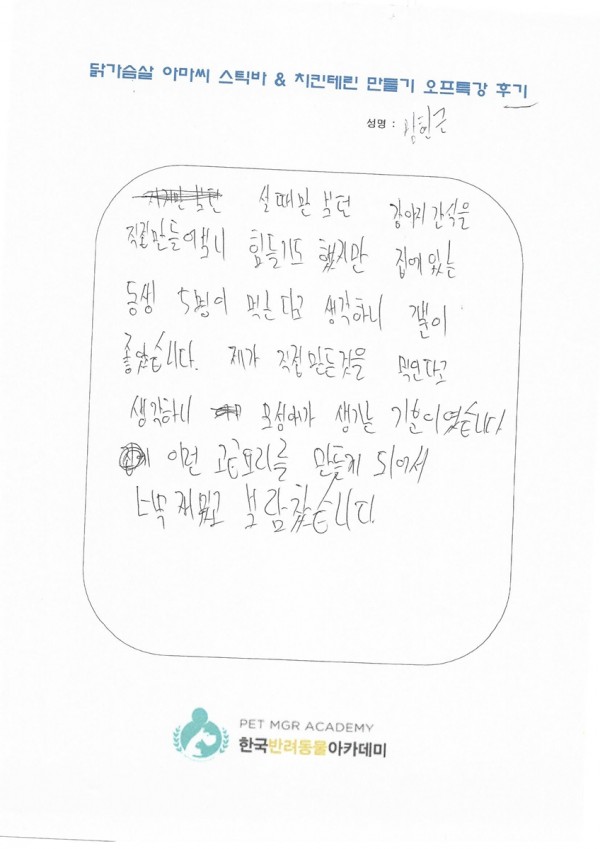 닭가슴살 아마씨 스틱바 & 치킨테린 만들기 오프특강 후기
성명 : 김현근
살때만 봤던 강아지 간식을
직접만들어보니 힘들기도 했지만 집에 있는
동생 5명이 먹는다고 생각하니 기분이
좋았습니다. 제가 직접만든것을 먹인다고
생각하니 모성애가 생기는 기분이였습니다
이런 고급요리를 만들게 되어서
너무 재밌고 보람찼습니다.
PET MGR ACADEMY
한국반려동물아카데미